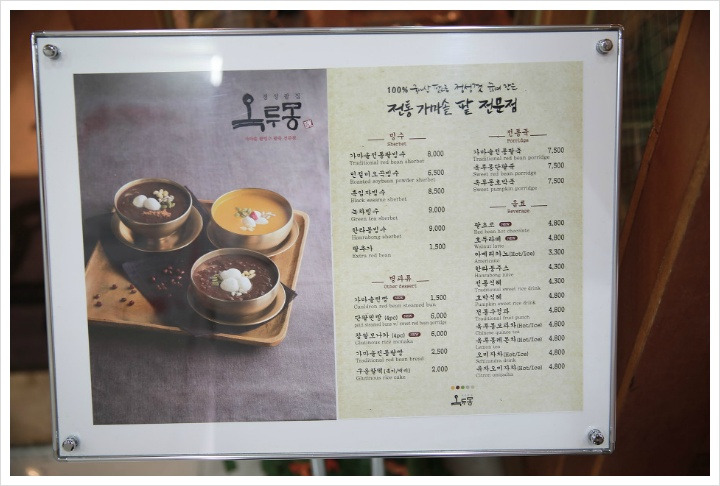 옥루몽
100% 국내산 팥으로 정성껏
전통 가마솥 팥 전문점
빙수
Sherbet
가마솥전통팥빙수 8,000
Traditional red bean sherbet
인절미오곡빙수 8,500
Roasted soybean powder sherbet
흑임자빙수 8,500
Black sesame sherbet
녹차빙수 9,000
Green tea sherbet
한라봉빙수 9,000
Hanrabong sherbet
팥추가 1,500
Extra red bean
Other dessert
가마솥찐빵 1,500
Cauldron red bean steamed bun
단팥찐빵 (4pc) 6,000
찹쌀모나카 (4pc) 6,000
Glutinous rice monaka
가마솥전통팥빵 2,500
Traditional red bean bread
구운찰떡 2,000
Glutinous rice cake
전통죽
Porridge
가마솥전통팥죽 7,500
Traditional red bean porridge
옥루몽단팥죽 7,500
Sweet red bean porridge
옥루몽호박죽 7,500
Sweet pumpkin porridge
음료
Beverage
팥초코 4,800
Red bean hot chocolate
호두라떼 4,800
Walnut latte
아메리카노(Hot/Ice) 3,300
Americano
한라봉주스 4,300
Hanrabong juice
전통식혜 4,300
Traditional sweet rice drink
호박식혜 4,800
Pumpkin sweet rice drink
전통수정과 4,800
Traditional fruit punch
옥루몽모과차(Hot/Ice) 4,800
Chinese quince tea
옥루몽레몬차(Hot/Ice) 4,800
Lemon tea
오미자차(Hot/Ice) 4,800
Schizandra drink
유자오미자차(Hot/Ice) 4,800
Citron omizacha
옥루몽